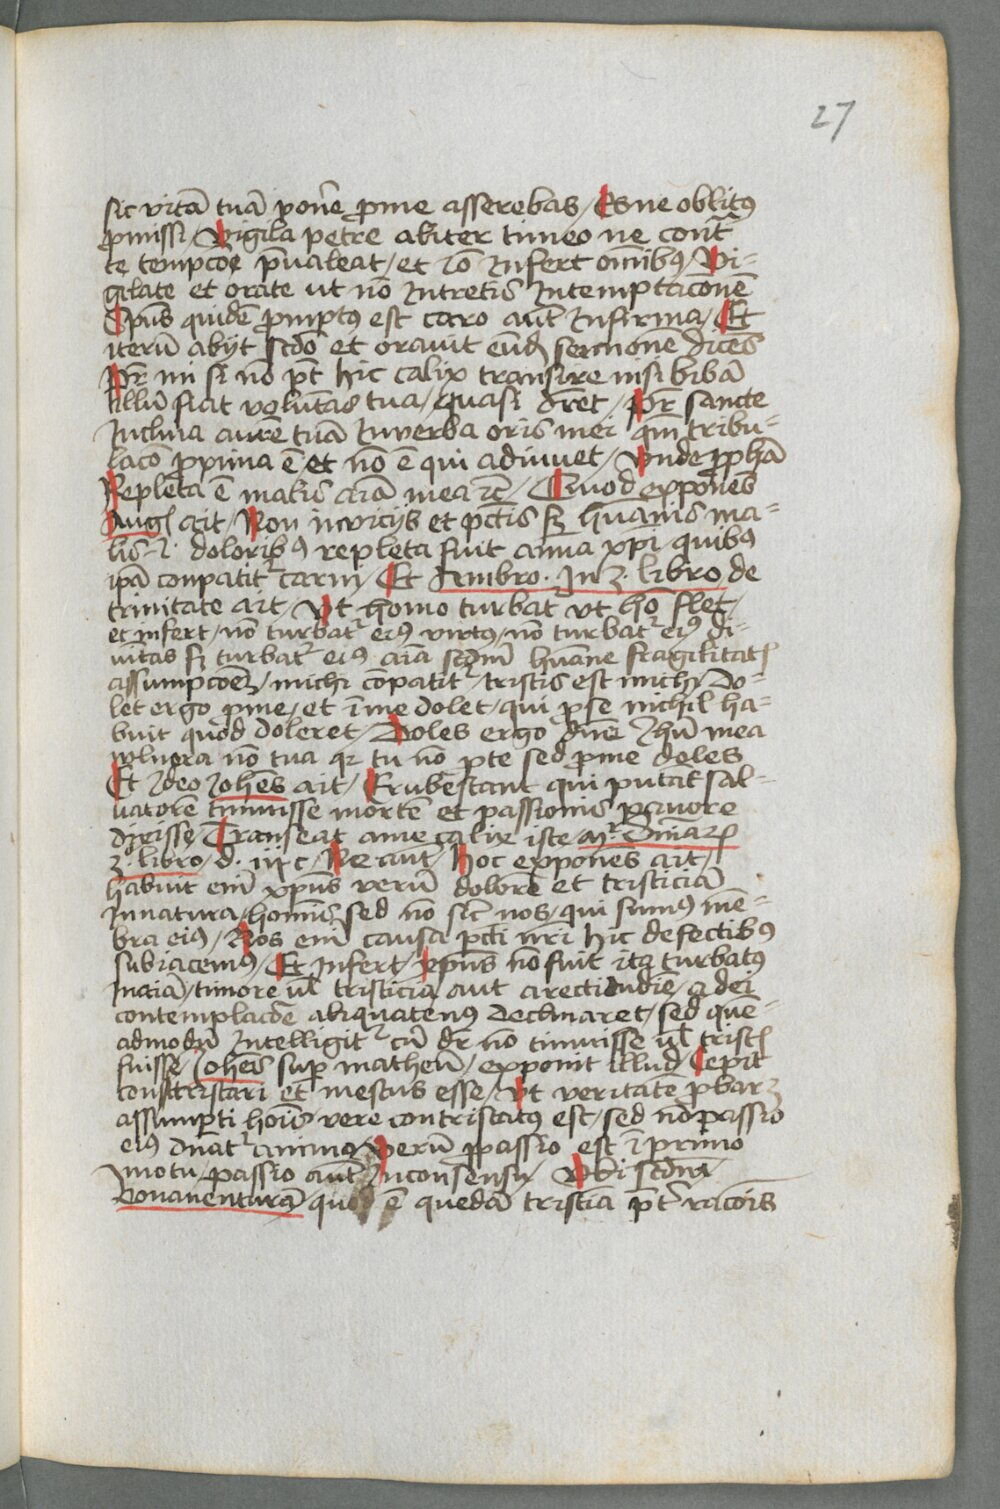 27
sic vitā tuā ponē̄ ꝓme asserebas / Esne oblitꝰ
ꝓmissi / Vigila petre aliter timeo ne cont̄
te temptc̄oē p̄ualeat / et iō Infert om̄ibꝰ / Vi-
gilate et orate ut nō Intretis Intemptac̄onē
Sp̄us quidē ꝓmptꝰ est caro aūt Infirma / Et
iterū abijt sc̄do et orauit eūd sermonē dicēs
Pr̄ mi si nō p̄t hic calix transire nisi bibā
illū fiat volūtas tua / Quasi dr̄et / Pr̄ sancte
Inclina aurē tuā Inverba oris mei qm̄ tribu-
lac̄o ꝓxima ē et nō ē qui adiuuet / Vnde ꝓphā
Repleta ē malis aīa mea ꝛc̄ / Quod exponēs
Augꝰ ait / Non invicijs et pc̄tis sꝫ hūanis ma-
lis .i. doloribꝰ repleta fuit anima xpi / quibꝰ
ip̄a conpatit᷑ carni / Et Ambro . In 3 . libro de
trinitate ait / Vt homo turbat᷑ vt hō flet /
et infert / nō turbat᷑ eiꝰ virtꝰ / nō turbat᷑ eiꝰ di-
uitas sꝫ turbat᷑ eiꝰ aīa scd̄m hūane fragilitatꝭ
assumpc̄oēꝫ / michi cōpatit᷑ / tristis est michi / Do-
let ergo ꝓme / et ī me dolet / qui ꝓse nichil ha-
buit quod doleret / Doles ergo dn̄e Jhū mea
wlnera nō tua qꝛ tu nō ꝓte sed ꝓme doles
Et Ideo Joh̄es ait / Erubescant qui putāt sal-
uatorē timuisse mortē et passionis pauore
dixisse / Transeat ame calix iste
3 . libro / d . Hoc exponēs ait /
habuit enī xp̄us verū dolorē et tristiciā
Innatura / hominis sed nō sic̄ nos / qui sumꝰ mē-
bra eiꝰ / Nos enī causa pc̄ti nr̄i hic defectibꝰ
subiacemꝰ / Et Infert / xp̄us nō fuit ita turbatꝰ
In aīa / timore ūl tristicia aut arectitudīe / a dei
contemplac̄oē aliquatenꝰ declinaret / sed quē-
admodū Intelligit᷑ cū dr̄ nō timuisse ūl tristꝭ
fuisse / Joh̄es sup matheū / exponit illud / Cepit
constristari et mestus esse / Vt veritatē ꝓbarꝫ
assumpti hoīs vere contristatꝰ est / sed nō passio
eiꝰ dn̄at᷑ animo / Verū ꝓpassio est ī primo
motu / passio aūt Inconsensu / Vbi scd̄m
Bonauenturā ē quedā tristicia p̄t᷑ rac̄ois